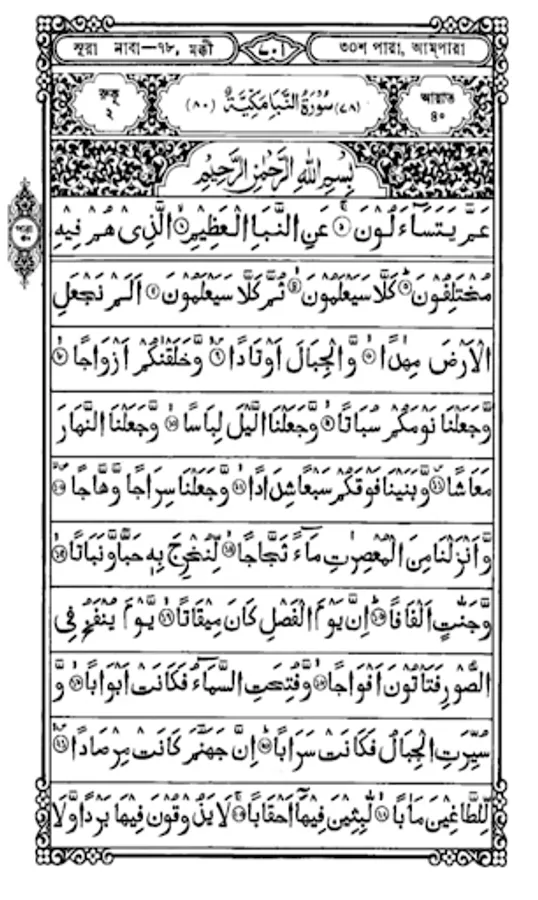 সূরা নাবা—৭৮, মক্কী
৩০শ পারা, আম্পারা
রুকু ২
(٧٨) سُوْرَةُ النَّبَا مَكِّيَّةٌ (٨٠)
আয়াত ৪০
بِسْمِ اللهِ الرَّحْمٰنِ الرَّحِيْمِ
পারা ৩০
عَمَّ يَتَسَآءَلُوْنَ ۝ عَنِ النَّبَاِ الْعَظِيْمِ ۝ الَّذِىْ هُمْ فِيْهِ
مُخْتَلِفُوْنَ ۝ كَلَّا سَيَعْلَمُوْنَ ۝ ثُمَّ كَلَّا سَيَعْلَمُوْنَ ۝ اَلَمْ نَجْعَلِ
الْاَرْضَ مِهٰدًا ۝ وَّالْجِبَالَ اَوْتَادًا ۝ وَّخَلَقْنٰكُمْ اَزْوَاجًا ۝
وَّجَعَلْنَا نَوْمَكُمْ سُبَاتًا ۝ وَّجَعَلْنَا الَّيْلَ لِبَاسًا ۝ وَّجَعَلْنَا النَّهَارَ
مَعَاشًا ۝ وَّبَنَيْنَا فَوْقَكُمْ سَبْعًا شِدَادًا ۝ وَّجَعَلْنَا سِرَاجًا وَّهَّاجًا ۝
وَّاَنْزَلْنَا مِنَ الْمُعْصِرٰتِ مَآءً ثَجَّاجًا ۝ لِّنُخْرِجَ بِهٖ حَبًّا وَّنَبَاتًا ۝
وَّجَنّٰتٍ اَلْفَافًا ۝ اِنَّ يَوْمَ الْفَصْلِ كَانَ مِيْقَاتًا ۝ يَّوْمَ يُنْفَخُ فِى
الصُّوْرِ فَتَاْتُوْنَ اَفْوَاجًا ۝ وَّفُتِحَتِ السَّمَآءُ فَكَانَتْ اَبْوَابًا ۝ وَّ
سُيِّرَتِ الْجِبَالُ فَكَانَتْ سَرَابًا ۝ اِنَّ جَهَنَّمَ كَانَتْ مِرْصَادًا ۝
لِّلطَّاغِيْنَ مَاٰبًا ۝ لّٰبِثِيْنَ فِيْهَآ اَحْقَابًا ۝ لَا يَذُوْقُوْنَ فِيْهَا بَرْدًا وَّلَا